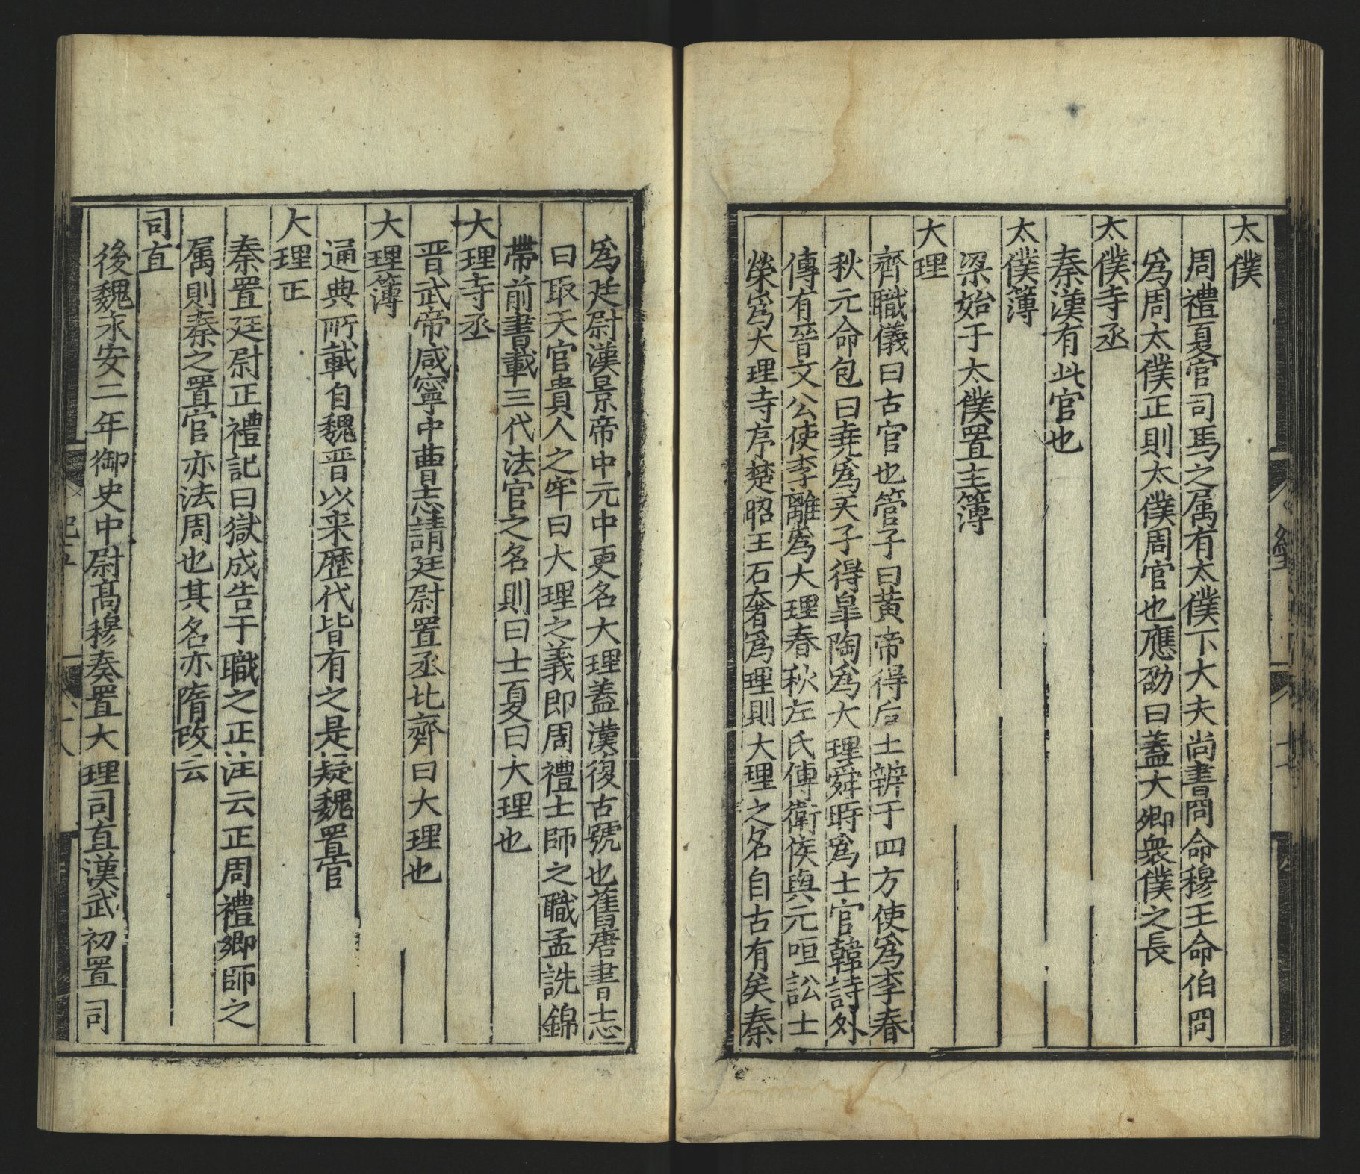 太僕
周禮夏官司馬之属有太僕下大夫尚書冏命穆王命伯冏
爲周太僕正則太僕周官也應劭曰蓋大卿衆僕之長
太僕寺丞
秦漢有此官也
太僕薄
梁始于太僕置主簿
大理
齊職儀曰古官也管子曰黄帝得后土辨于四方使爲李春
秋元命包曰堯爲天子得臯陶爲大理舜時爲士官韓詩外
傳有晉文公使李離爲大理春秋左氏傳衛侯與元咺訟士
榮爲大理寺序楚昭王石奢爲理則大理之名自古有矣秦
爲廷尉漢景帝中元中更名大理蓋漢復古號也舊唐書志
曰取天官貴人之牢曰大理之義即周禮士師之職孟詵錦
帶前書載三代法官之名則曰士夏曰大理也
大理寺丞
晋武帝咸寧中曹志請廷尉置丞北齊曰大理也
大理簿
通典所載自魏晋以来歴代皆有之是疑魏置官
大理正
秦置廷尉正禮記曰獄成告于職之正注云正周禮鄉師之
属則秦之置官亦法周也其名亦隋改云
司直
後魏永安二年御史中尉髙穆奏置大理司直漢武初置司